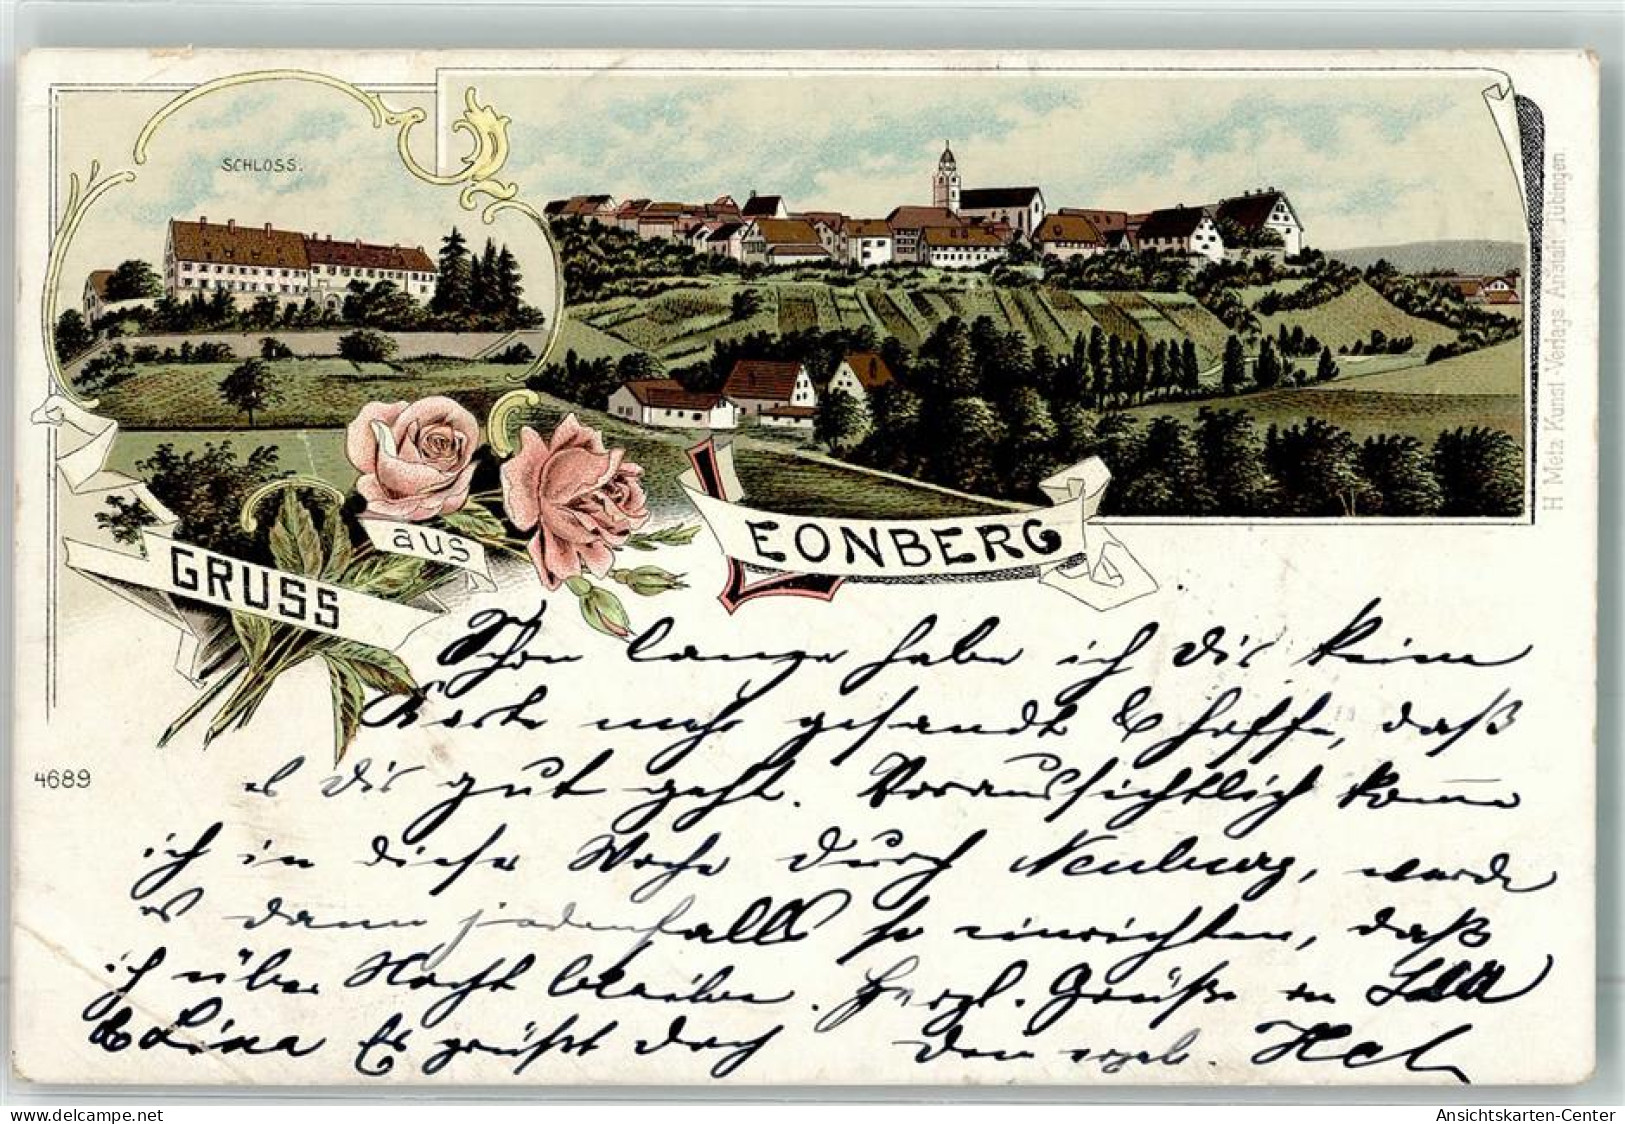 SCHLOSS.
H Metz Kunst-Verlags Anstalt Tübingen.
GRUSS aus LEONBERG
4689
Schon lange habe ich Dir keine
Karte mehr gesandt & hoffe, daß
es Dir gut geht. Voraussichtlich komme
ich in dieser Woche durch Neuburg, werde
es dann jedenfalls so einrichten, daß
ich über Nacht bleibe. Herzl. Grüße an
& Lina Es grüßt Dich Dein
Ansichtskarten-Center